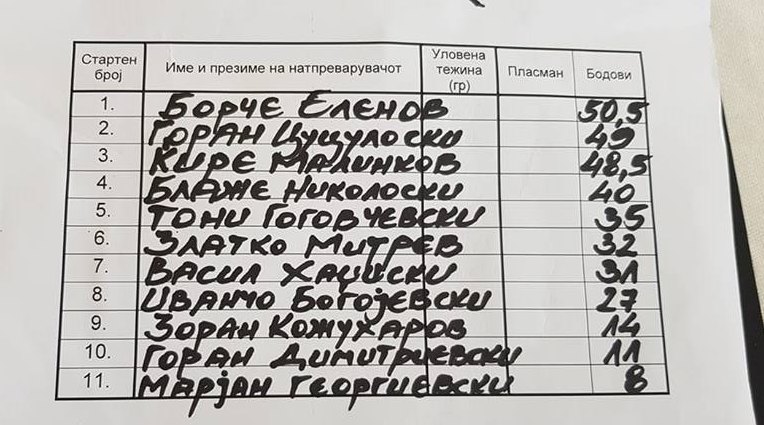 Стартен број Име и презиме на натпреварувачот Уловена тежина (гр) Пласман Бодови
1. БОРЧЕ ЕЛЕНОВ 50,5
2. ГОРАН ЦУЦУЛОСКИ 49
3. КИРЕ МАЛИНКОВ 48,5
4. БЛАЖЕ НИКОЛОСКИ 40
5. ТОНИ ГОГОВЧЕВСКИ 35
6. ЗЛАТКО МИТРЕВ 32
7. ВАСИЛ ХАЏИСКИ 31
8. ИВАНЧО БОГОЈЕВСКИ 27
9. ЗОРАН КОЖУХАРОВ 14
10. ГОРАН ДИМИТРИЕВСКИ 11
11. МАРЈАН ГЕОРГИЕВСКИ 8